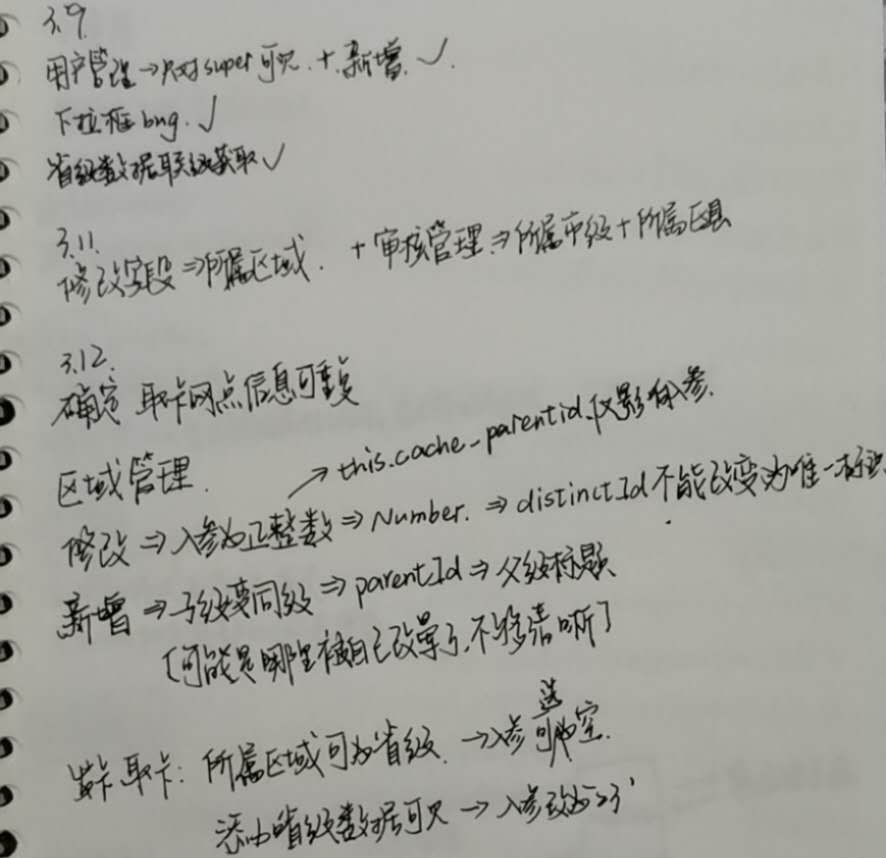 3.9.
用户管理→只对super可见.+新增.✓.
下拉框bug.✓
省级数据联级获取✓
3.11.
修改字段⇒所属区域. +审核管理.⇒所属市级+所属区县
3.12.
确定 取卡网点信息可重复
区域管理.
→this.cache_parentid.仅影响入参.
修改⇒入参如正整数⇒Number.⇒distinctId不能改变为唯一标识
新增⇒子级变同级⇒parentId⇒父级标题
[可能是哪里被自己改掌了,不够清晰]
取卡:所属区域可为省级.→入参可为空.
选
添加省级数据可见→入参改为